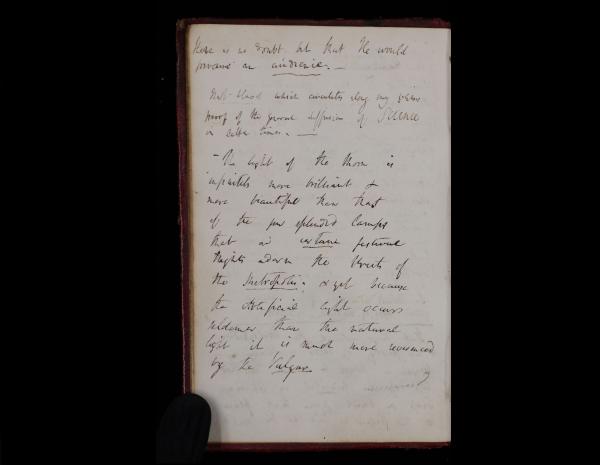 there is no doubt but that He would
procure an audience. —
that blood which circulates along my veins
proof of the general diffusion of Science
in latter times. —
– The light of the moon is
infinitely more brilliant &
more beautiful than that
of the few splendid Lamps
that on certain festival
Nights adorn the Streets of
the Metropolis; & yet because
the Artificial light occurs
seldomer than the natural
light it is much more reverenced
by the Vulgar